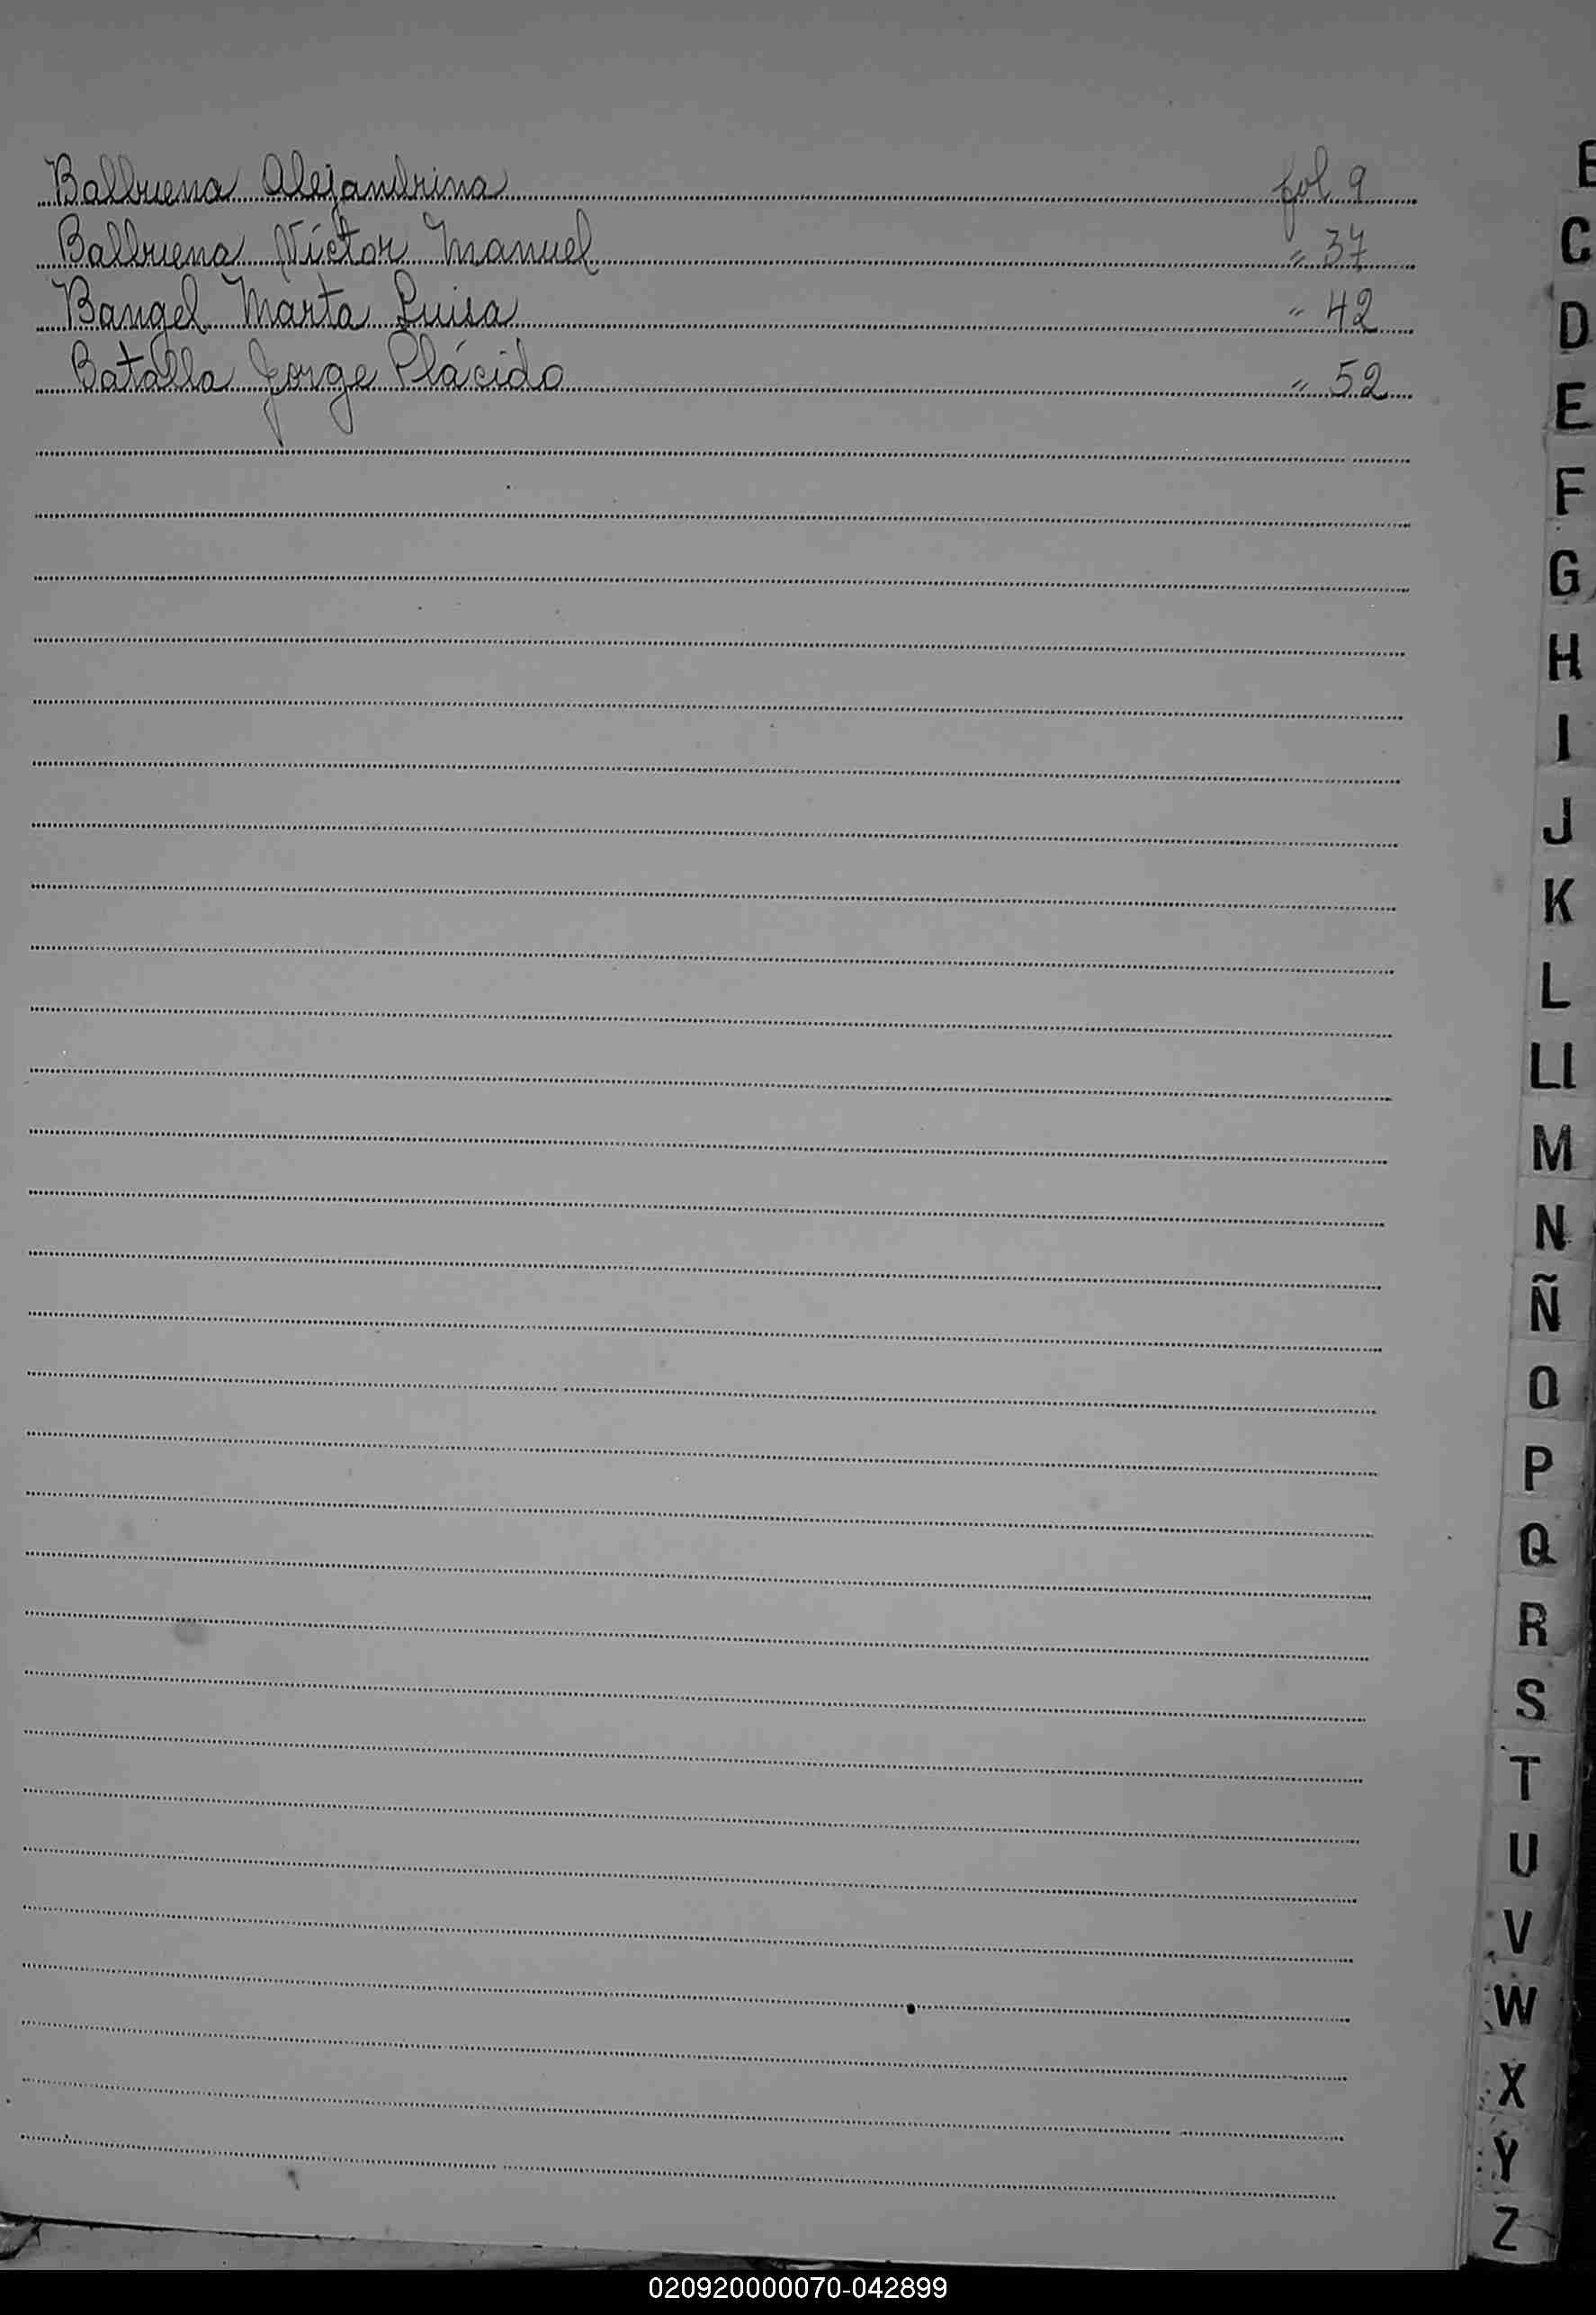 Balbuena Alejandrina fol 9
Balbuena Víctor Manuel " 37
Bangel Marta Luisa " 42
Batalla Jorge Plácido " 52
B
C
D
E
F
G
H
I
J
K
L
Ll
M
N
Ñ
O
P
Q
R
S
T
U
V
W
X
Y
Z
020920000070-042899